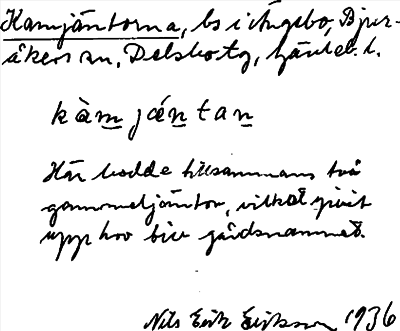 Kamjäntorna, bs i Ängebo, Bjur-
åkers sn, Delsbo tg, Gävleb. l.
kàm ján tan
Här bodde tillsammans två
gammeljäntor, vilket givit
upphov till gårdsnamnet.
Nils Erik Eriksson 1936